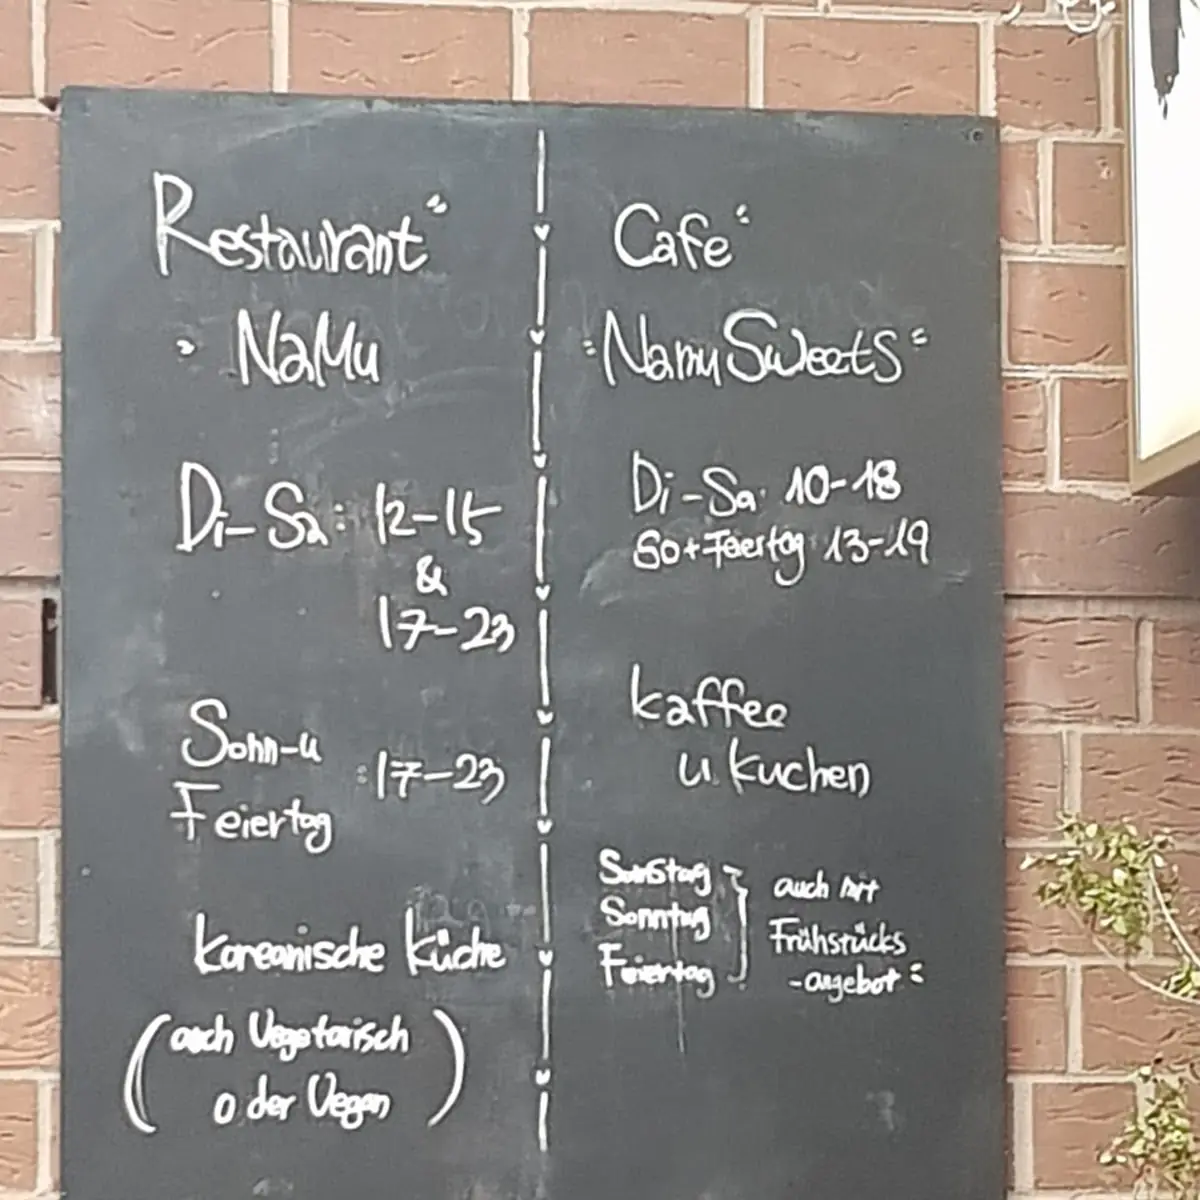 Restaurant"
" NaMu
Di-Sa: 12-15
&
17-23
Sonn-u
Feiertag :17-23
koreanische küche
(auch Vegetarisch
oder Vegan)
Cafe"
"Namu Sweets"
Di-Sa: 10-18
So+Feiertag 13-19
kaffee
u. kuchen
Samstag
Sonntag
Feiertag
auch mit
Frühstücks
-angebot